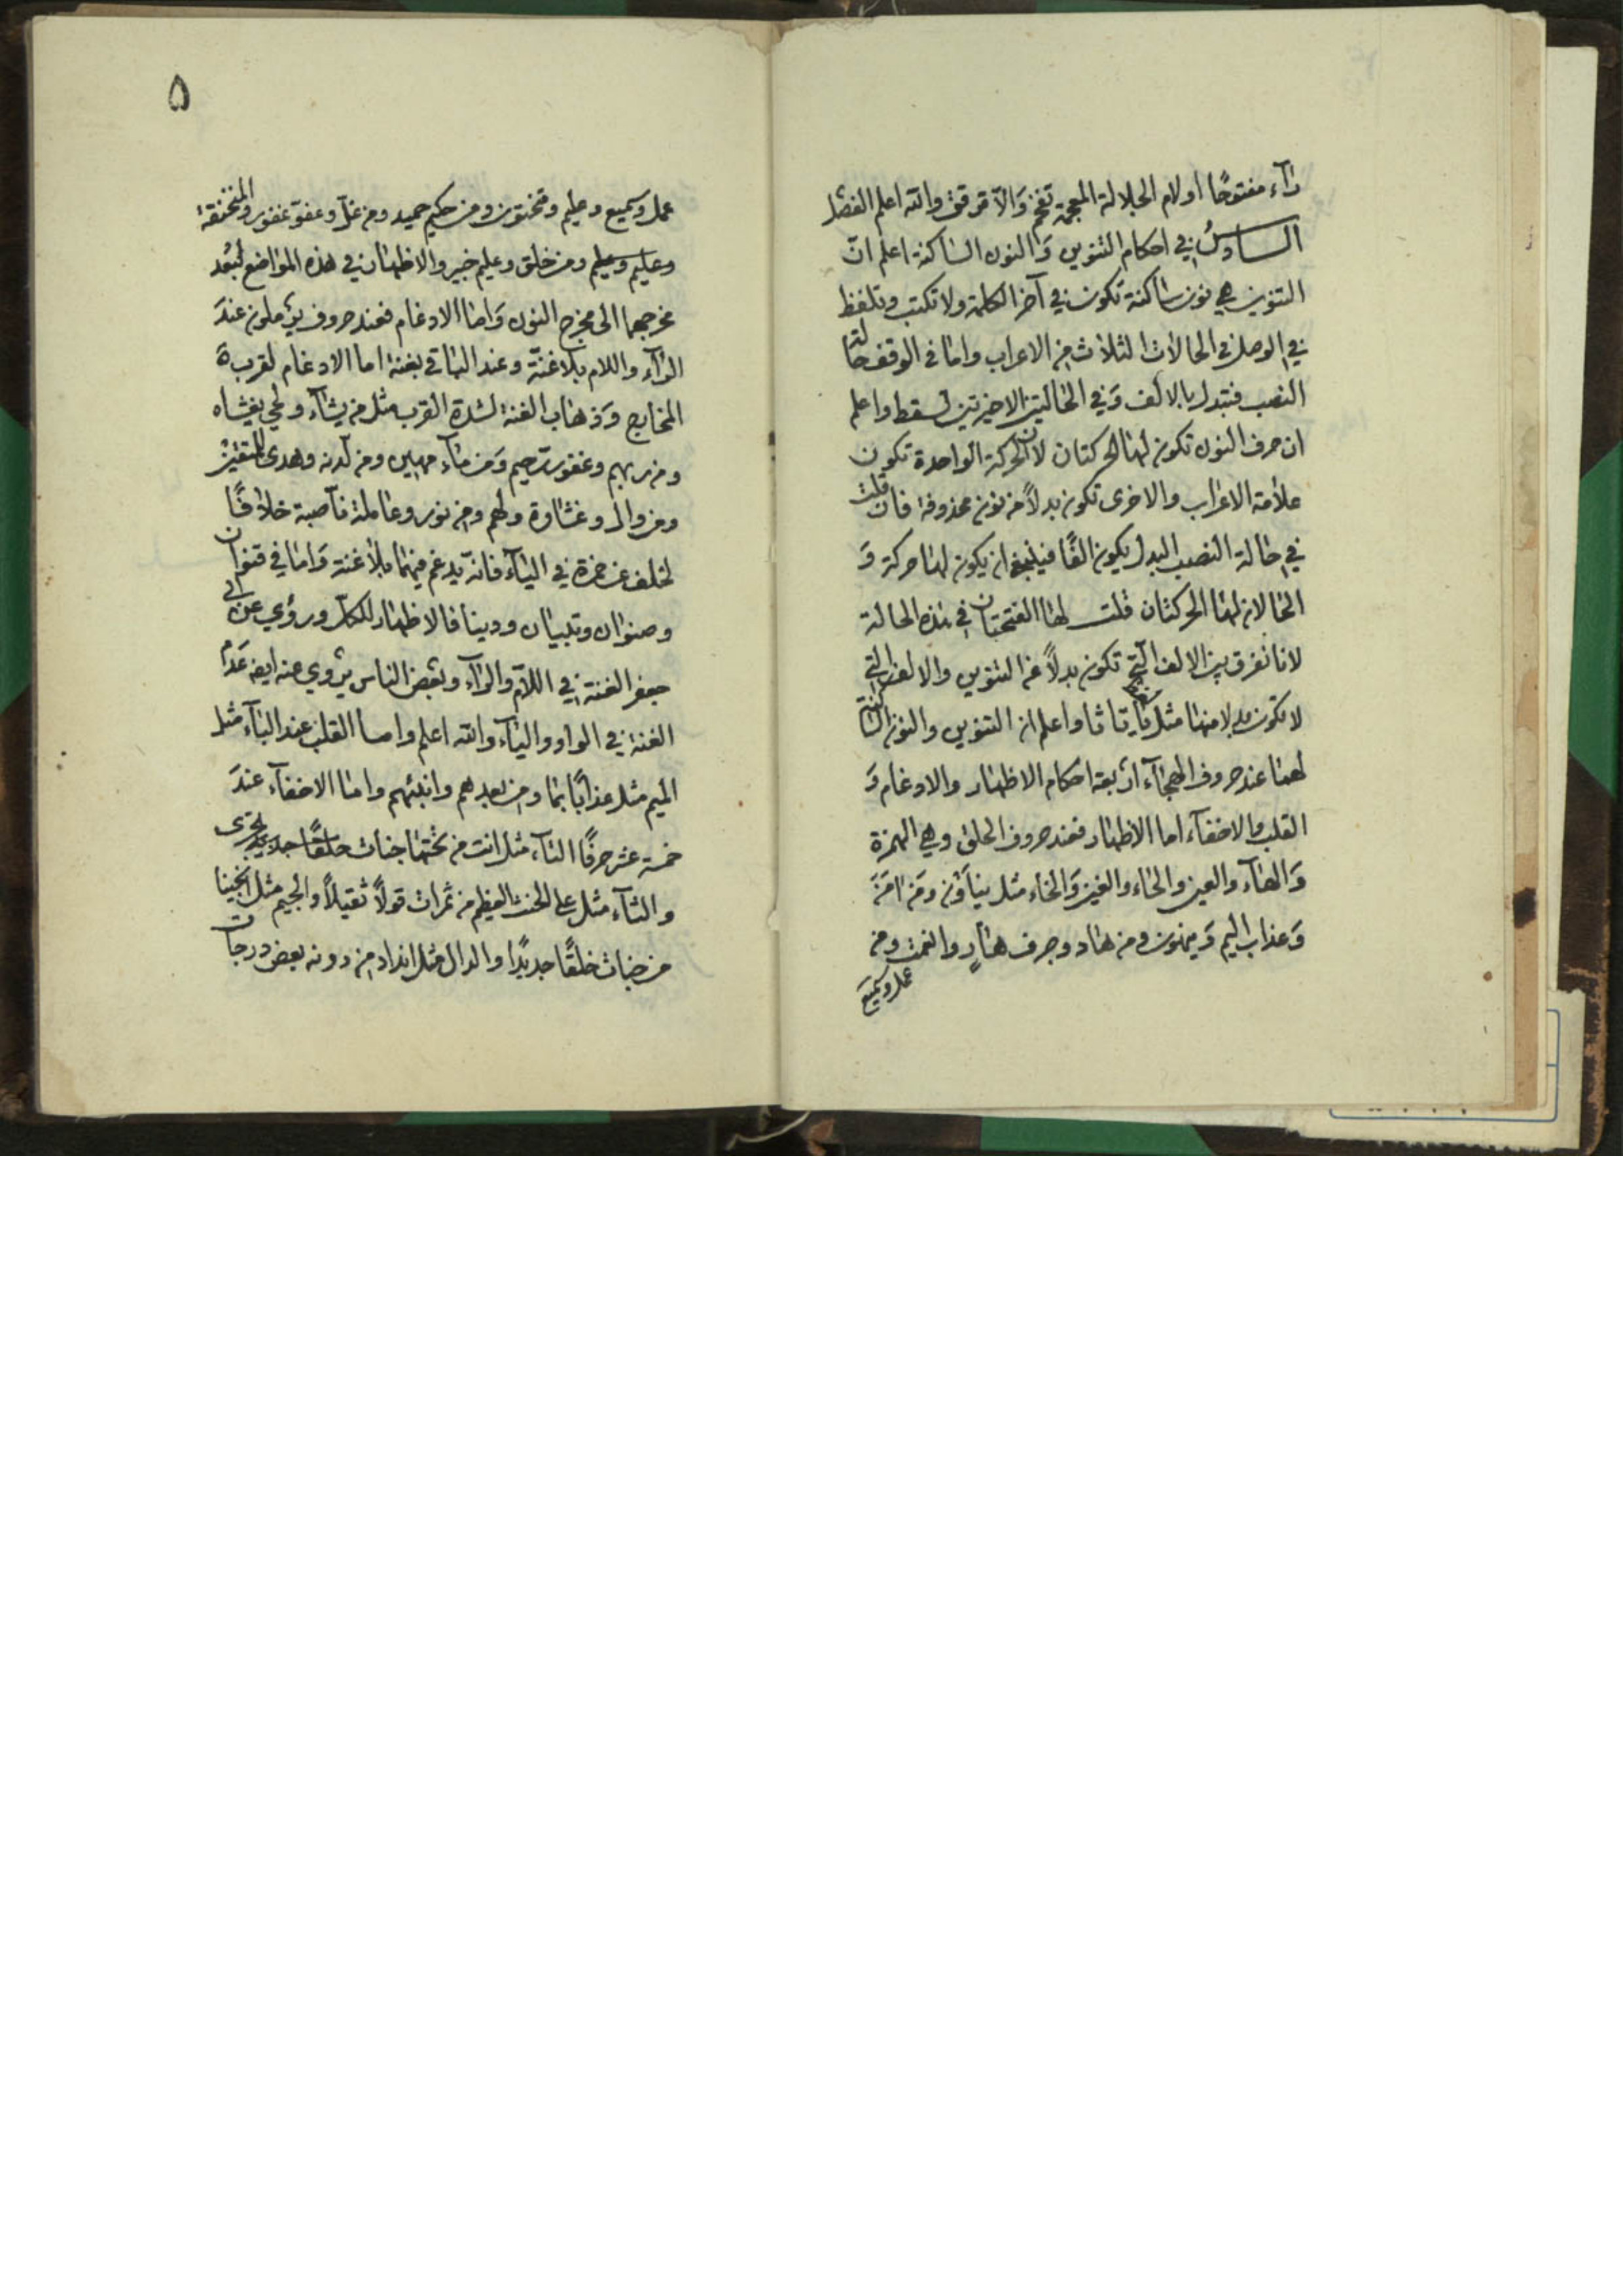 رآء مفتوحًا او لام الجلالة المعجمة تفخم وَالّا ترقق والله اعلم الفصل
السادسُ في احكام التنوين وَالنون الساكنة اعلم انّ
التنوين هي نون ساكنة تكون في آخر الكلمة ولا تكتب وتلفظ
في الوصل في الحالات الثلاث من الاعراب واما في الوقف حالة
النصب فتبدل بالالف وَفي الحالتين الاخيرتين تسقط واعلم
ان حرف النون تكون لها الحركتان لان الحركة الواحدة تكون
علامة الاعراب والاخرى تكون بدلاً من نون محذوفة فان قلت
في حالة النصب البدل يكون الفًا فينبغي ان يكون لها حركة وَ
الحال ان لها الحركتان قلت لها الفتحتان في هذه الحالة
لانا نفرق بين الالف الّتي تكون بدلاً عن التنوين والالف الّتي
لا تكون بدلا منها مثل با تا ثا واعلم ان التنوين والنون الساكنة
لهما عند حروف الهجآء اربعة احكام الاظهار والادغام وَ
القلب والاخفآء اما الاظهار فعند حروف الحلق وهي الهمزة
وَالهآء والعين والحاء والغين وَالخاء مثل يناَوْن ومَن امَنَ
وَعذاب اليم وَيمنون ومن هاد وجرف هارٍ وانعمت ومن
عمل وسميع
۵
عمل وسميع وعليم وتنحتون ومن حكيم حميد ومن غلّ وعفوّ غفور والمنخنقة
وعليم وعليم ومن خلق وعليم خبير والاظهار في هذه المواضع لبُعد
مخرجهما الى مخرج النون وَامّا الادغام فعند حروف يرملون عندَ
الرآء واللام بلا غنّة وعند الباقي بغنة اما الادغام لقرب
المخارج وَذهاب الغنة لشدة القرب مثل من يشآء ولجي يغشاه
ومن ربهم وغفور رحيم وَمن مآء مهين ومن لدنه وهدى للمتقين
ومن وال وغشاوة ولهم ومن نور وعاملة ناصبة خلافًا
لخلف عن حمزة في اليآء فانه يدغم فيهما بلا غنة وَاما في قنوان
وصنوان وبنيان ودينا فالاظهار للكلّ وروي عن ابي
جعفر الغنة في اللّام والرّآء وبعض الناس يروي عنه ايضا عَدَم
الغنة في الواو واليآء والله اعلم واما القلب عند البآء مثل
الميم مثل عذابًا بما ومن بعدهم وانبئهم واما الاخفآء عندَ
خمسة عشر حرفًا التآء مثل انت من تحتها جنات تجرى
والثآء مثل على الحنث العظيم من ثمرات قولاً ثقيلاً والجيم مثل انجينا
من جنات خلقًا جديدًا والدال مثل انداد من دونه بعض درجات